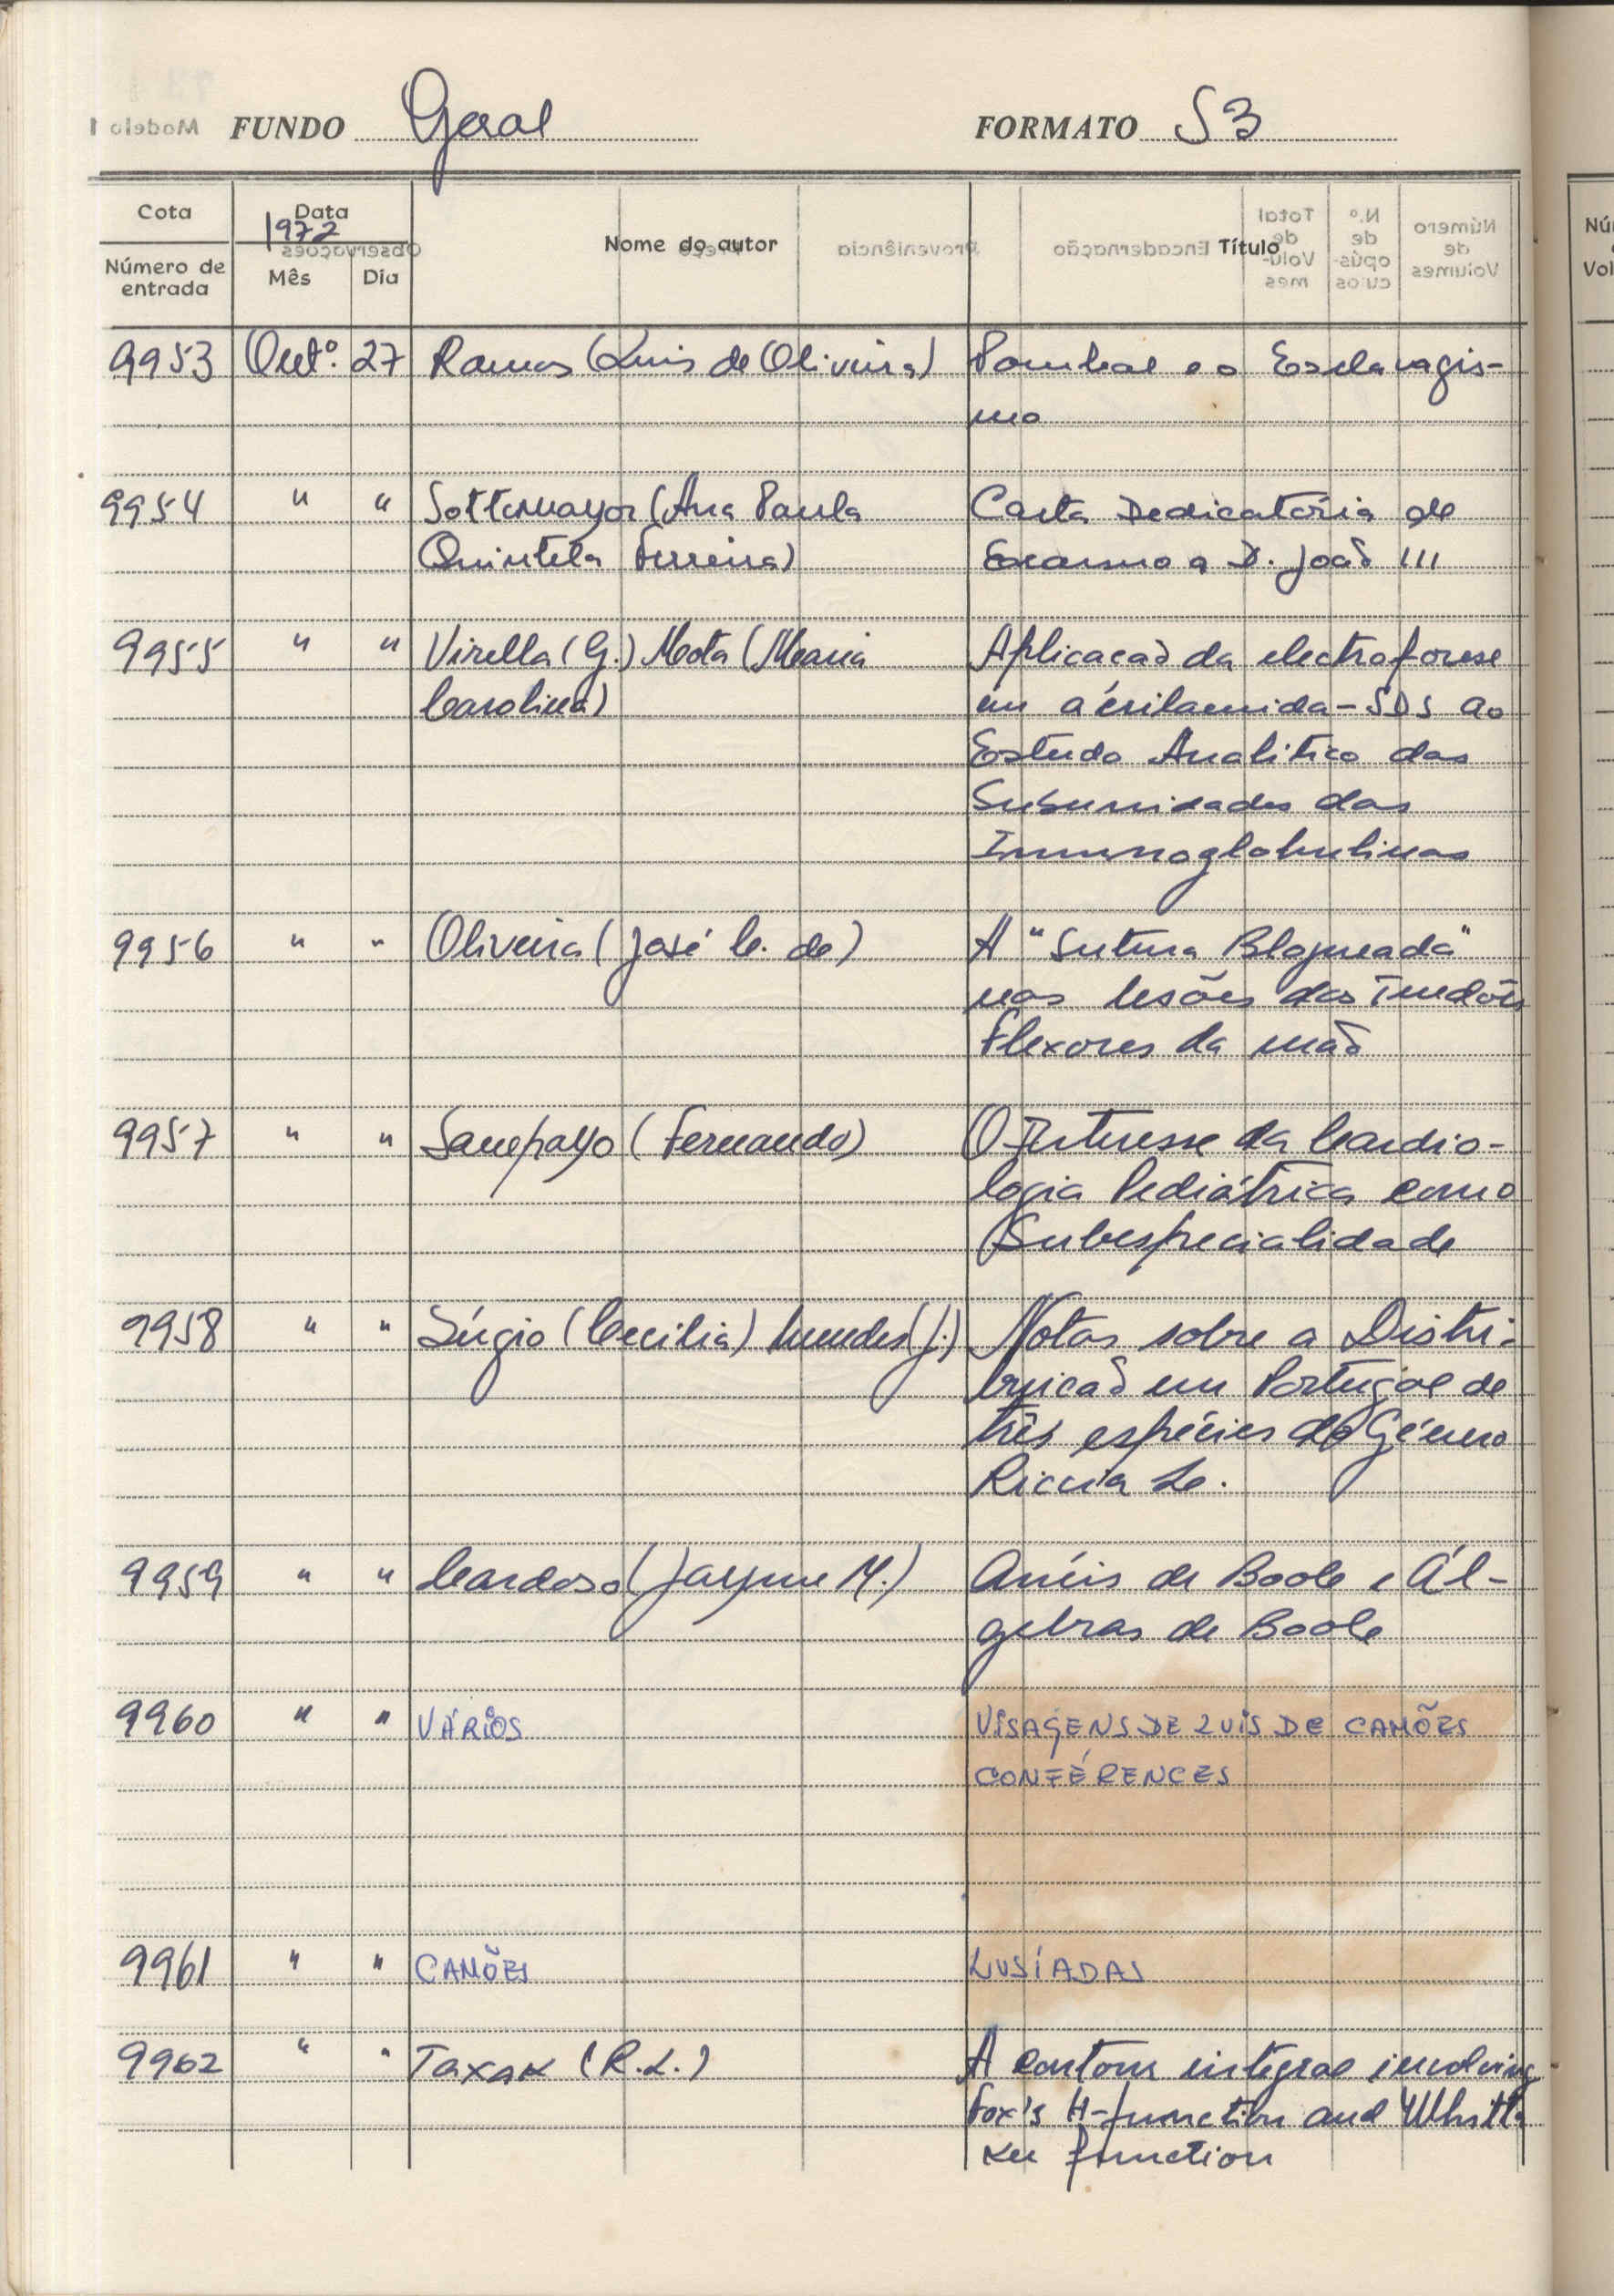 FUNDO Geral FORMATO S3
Cota Data Nome do autor Título
1972
Número de entrada Mês Dia
9953 Outº. 27 Ramos (Luis de Oliveira) Pombal e o Esclavagis-
mo
9954 " " Sottomayor (Ana Paula Carta Dedicatória de
Quintela Ferreira) Erasmo a D. João III
9955 " " Virella (G.) Mota (Maria Aplicação da electroforese
Carolina) em acrilamida-SDS ao
Estudo Analitico das
Subunidades das
Imunoglobulinas
9956 " " Oliveira (José C. de) A "Sutura Bloqueada"
nas lesões dos Tendões
Flexores da mão
9957 " " Sampayo (Fernando) O Interesse da Cardio-
logia Pediátrica como
Subespecialidade
9958 " " Sérgio (Cecilia) Mendes (J.) Notas sobre a Distri-
buicão em Portugal de
três espécies do Género
Riccia L.
9959 " " Cardoso (Jayme M.) Anéis de Boole e Ál-
gebras de Boole
9960 " " VÁRIOS VISAGENS DE LUIS DE CAMÕES
CONFÉRENCES
9961 " " CAMÕES LUSÍADAS
9962 " " Taxak (R.L.) A contour integral involving
Fox's H-function and Whitta
ker function